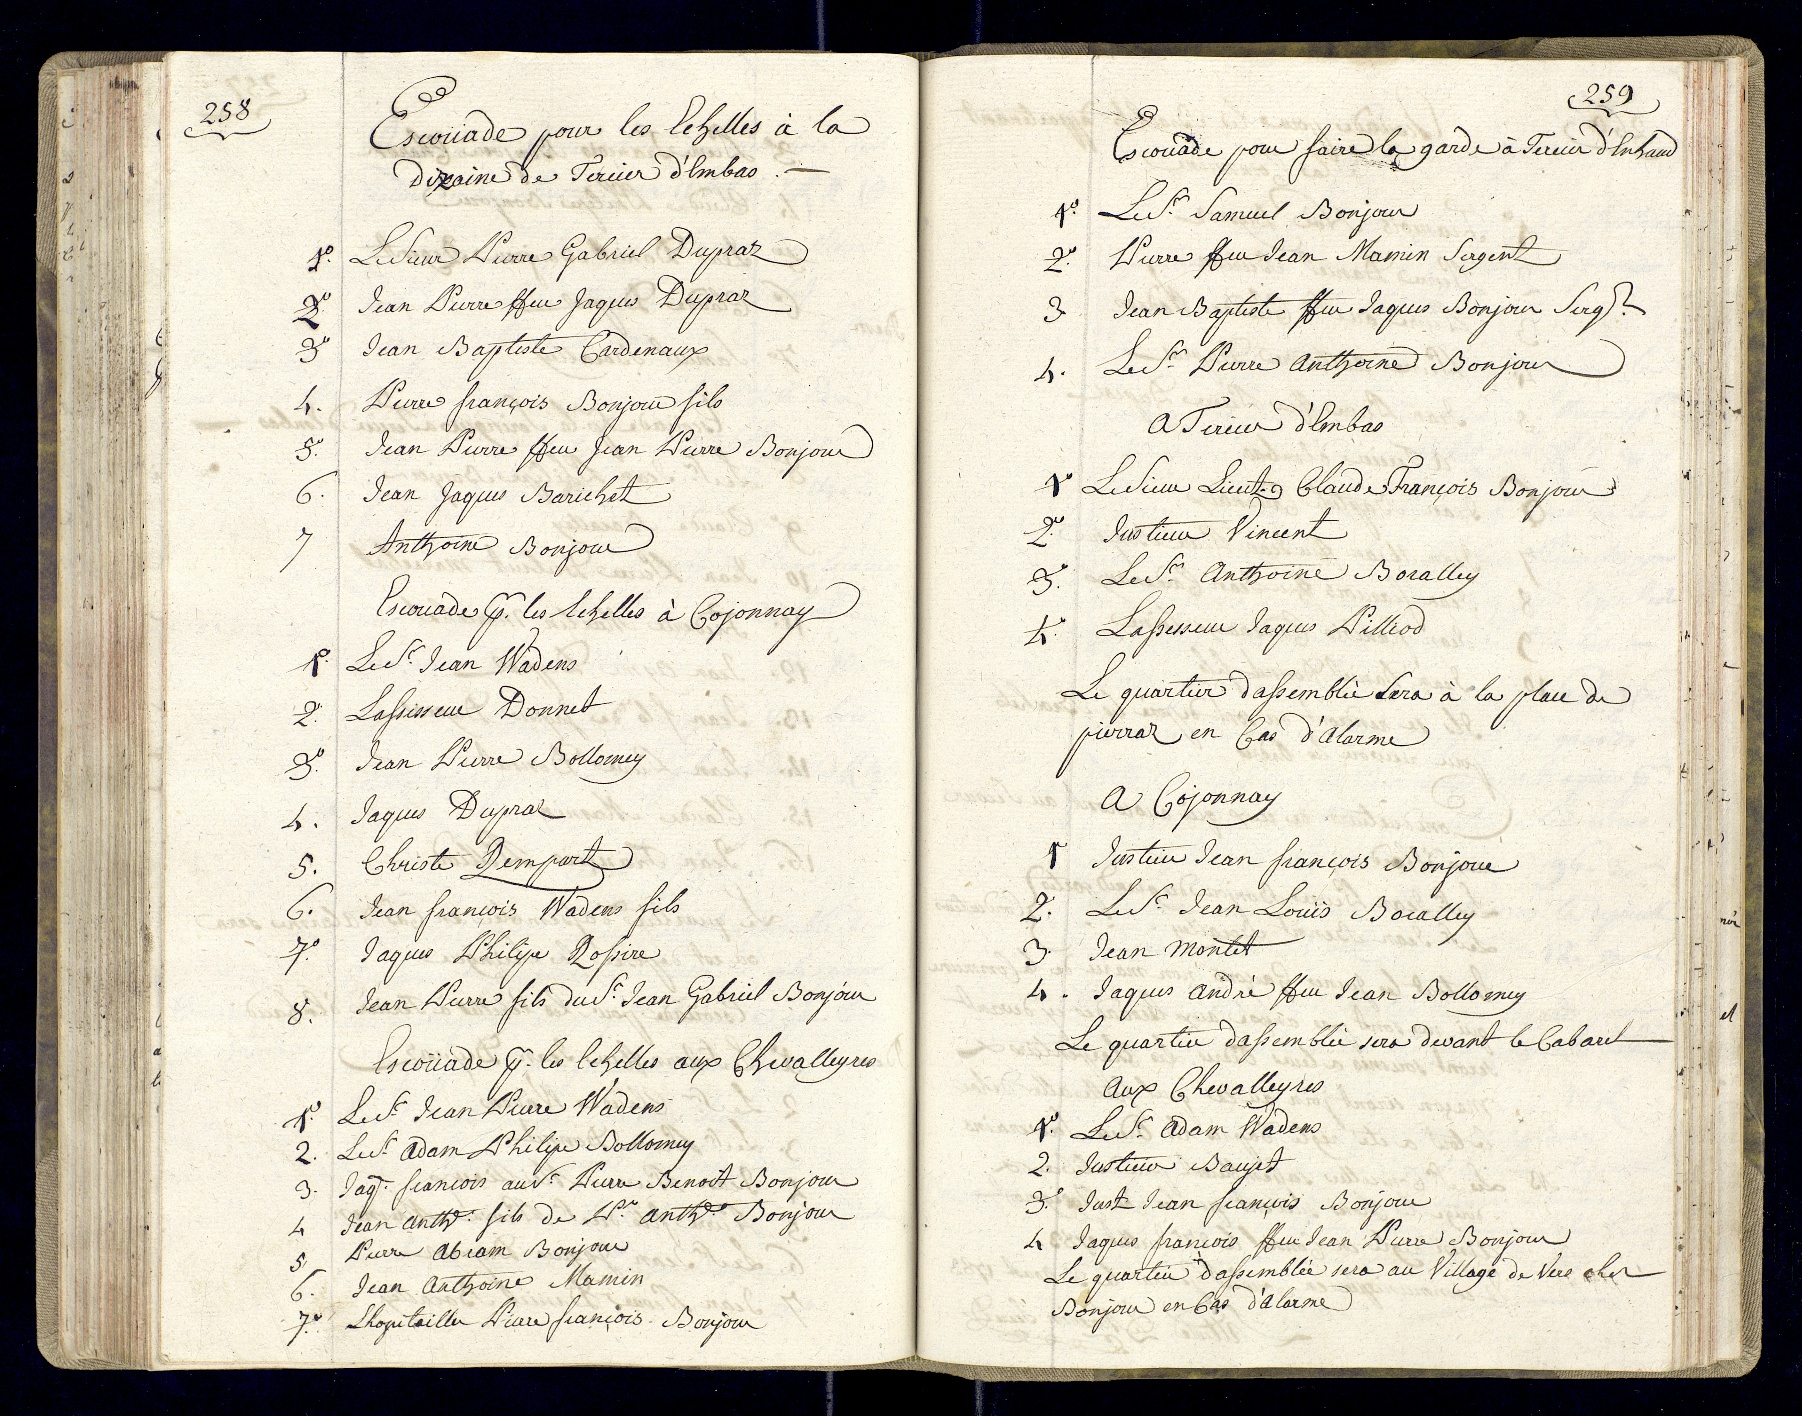 258
Escoüade pour les Echelles à la
dizaine de Tercier d'Embas. —
1.º Le Sieur Pierre Gabriel Dupraz
2.º Jean Pierre ffeu Jaques Dupraz
3.º Jean Baptiste Cardenaux
4. Pierre françois Bonjour fils
5.º Jean Pierre ffeu Jean Pierre Bonjour
6. Jean Jaques Barichet
7 Anthoine Bonjour
Escoüade pr. les Echelles à Cojonnay
1.º Le Sr. Jean Wadens
2.º Lassesseur Donnet
3.º Jean Pierre Bollomey
4. Jaques Dupraz
5. Christe Rempart
6. Jean françois Wadens fils
7.º Jaques Philipe Rossire
8. Jean Pierre fils du Sr. Jean Gabriel Bonjour
Escoüade pr. les Echelles aux Chevalleyres
1.º Le Sr. Jean Pierre Wadens
2. Le Sr. Adam Philipe Bollomey
3. Jaq.s françois au Sr. Pierre Benoit Bonjour
4 Jean Anth.e fils de P.re Anth.e Bonjour
5 Pierre Abram Bonjour
6. Jean Anthoine Mamin
7.º Lhopitailler Pierre françois Bonjour
259
Escoüade pour faire la garde à Tercier d'Enhaud
1.º Le Sr. Samuel Bonjour
2.º Pierre ffeu Jean Mamin Sergent
3 Jean Baptiste ffeu Jaques Bonjour Serg.t
4. Le Sr. Pierre Anthoine Bonjour
A Tercier d'Embas
1.º Le Sieur Lieut. Claude François Bonjour
2.º Justicier Vincent
3.º Le Sr. Anthoine Boralley
4.º Lassesseur Jaques Pilliod
Le quartier d'assemblée sera à la place de
pierraz en Cas d'Alarme
A Cojonnay
1 Justicier Jean françois Bonjour
2. Le Sr. Jean Louïs Boralley
3. Jean Montet
4. Jaques André ffeu Jean Bollomey
Le quartier d'assemblée sera devant le Cabaret
Aux Chevalleyres
1.º Le Sr. Adam Wadens
2. Justicier Baujet
3.º Just. Jean françois Bonjour
4 Jaques françois ffeu Jean Pierre Bonjour
Le quartier d'assemblée sera au Village de Vers chez
Bonjour en Cas d'Alarme